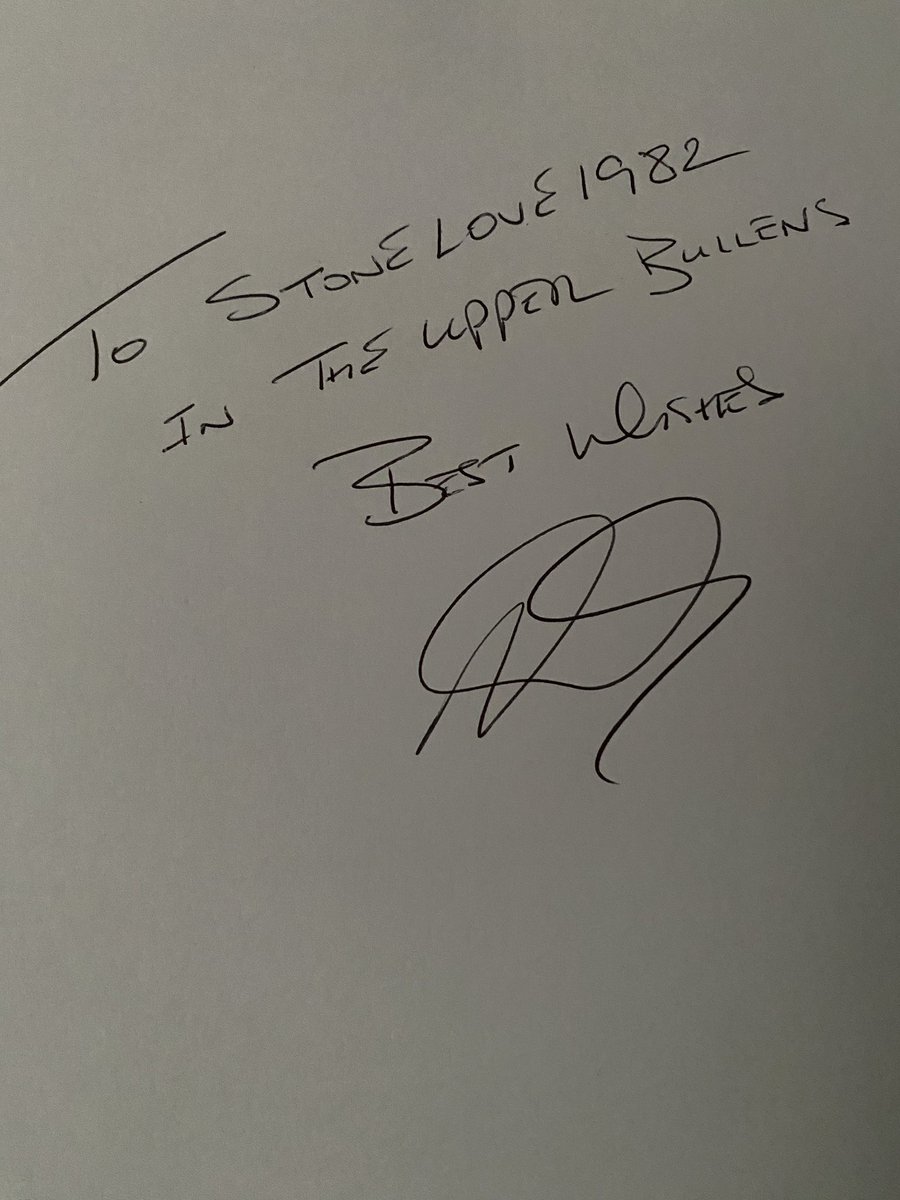 To STONE LOVE 1982
IN THE UPPER BULLENS
BEST WISHES